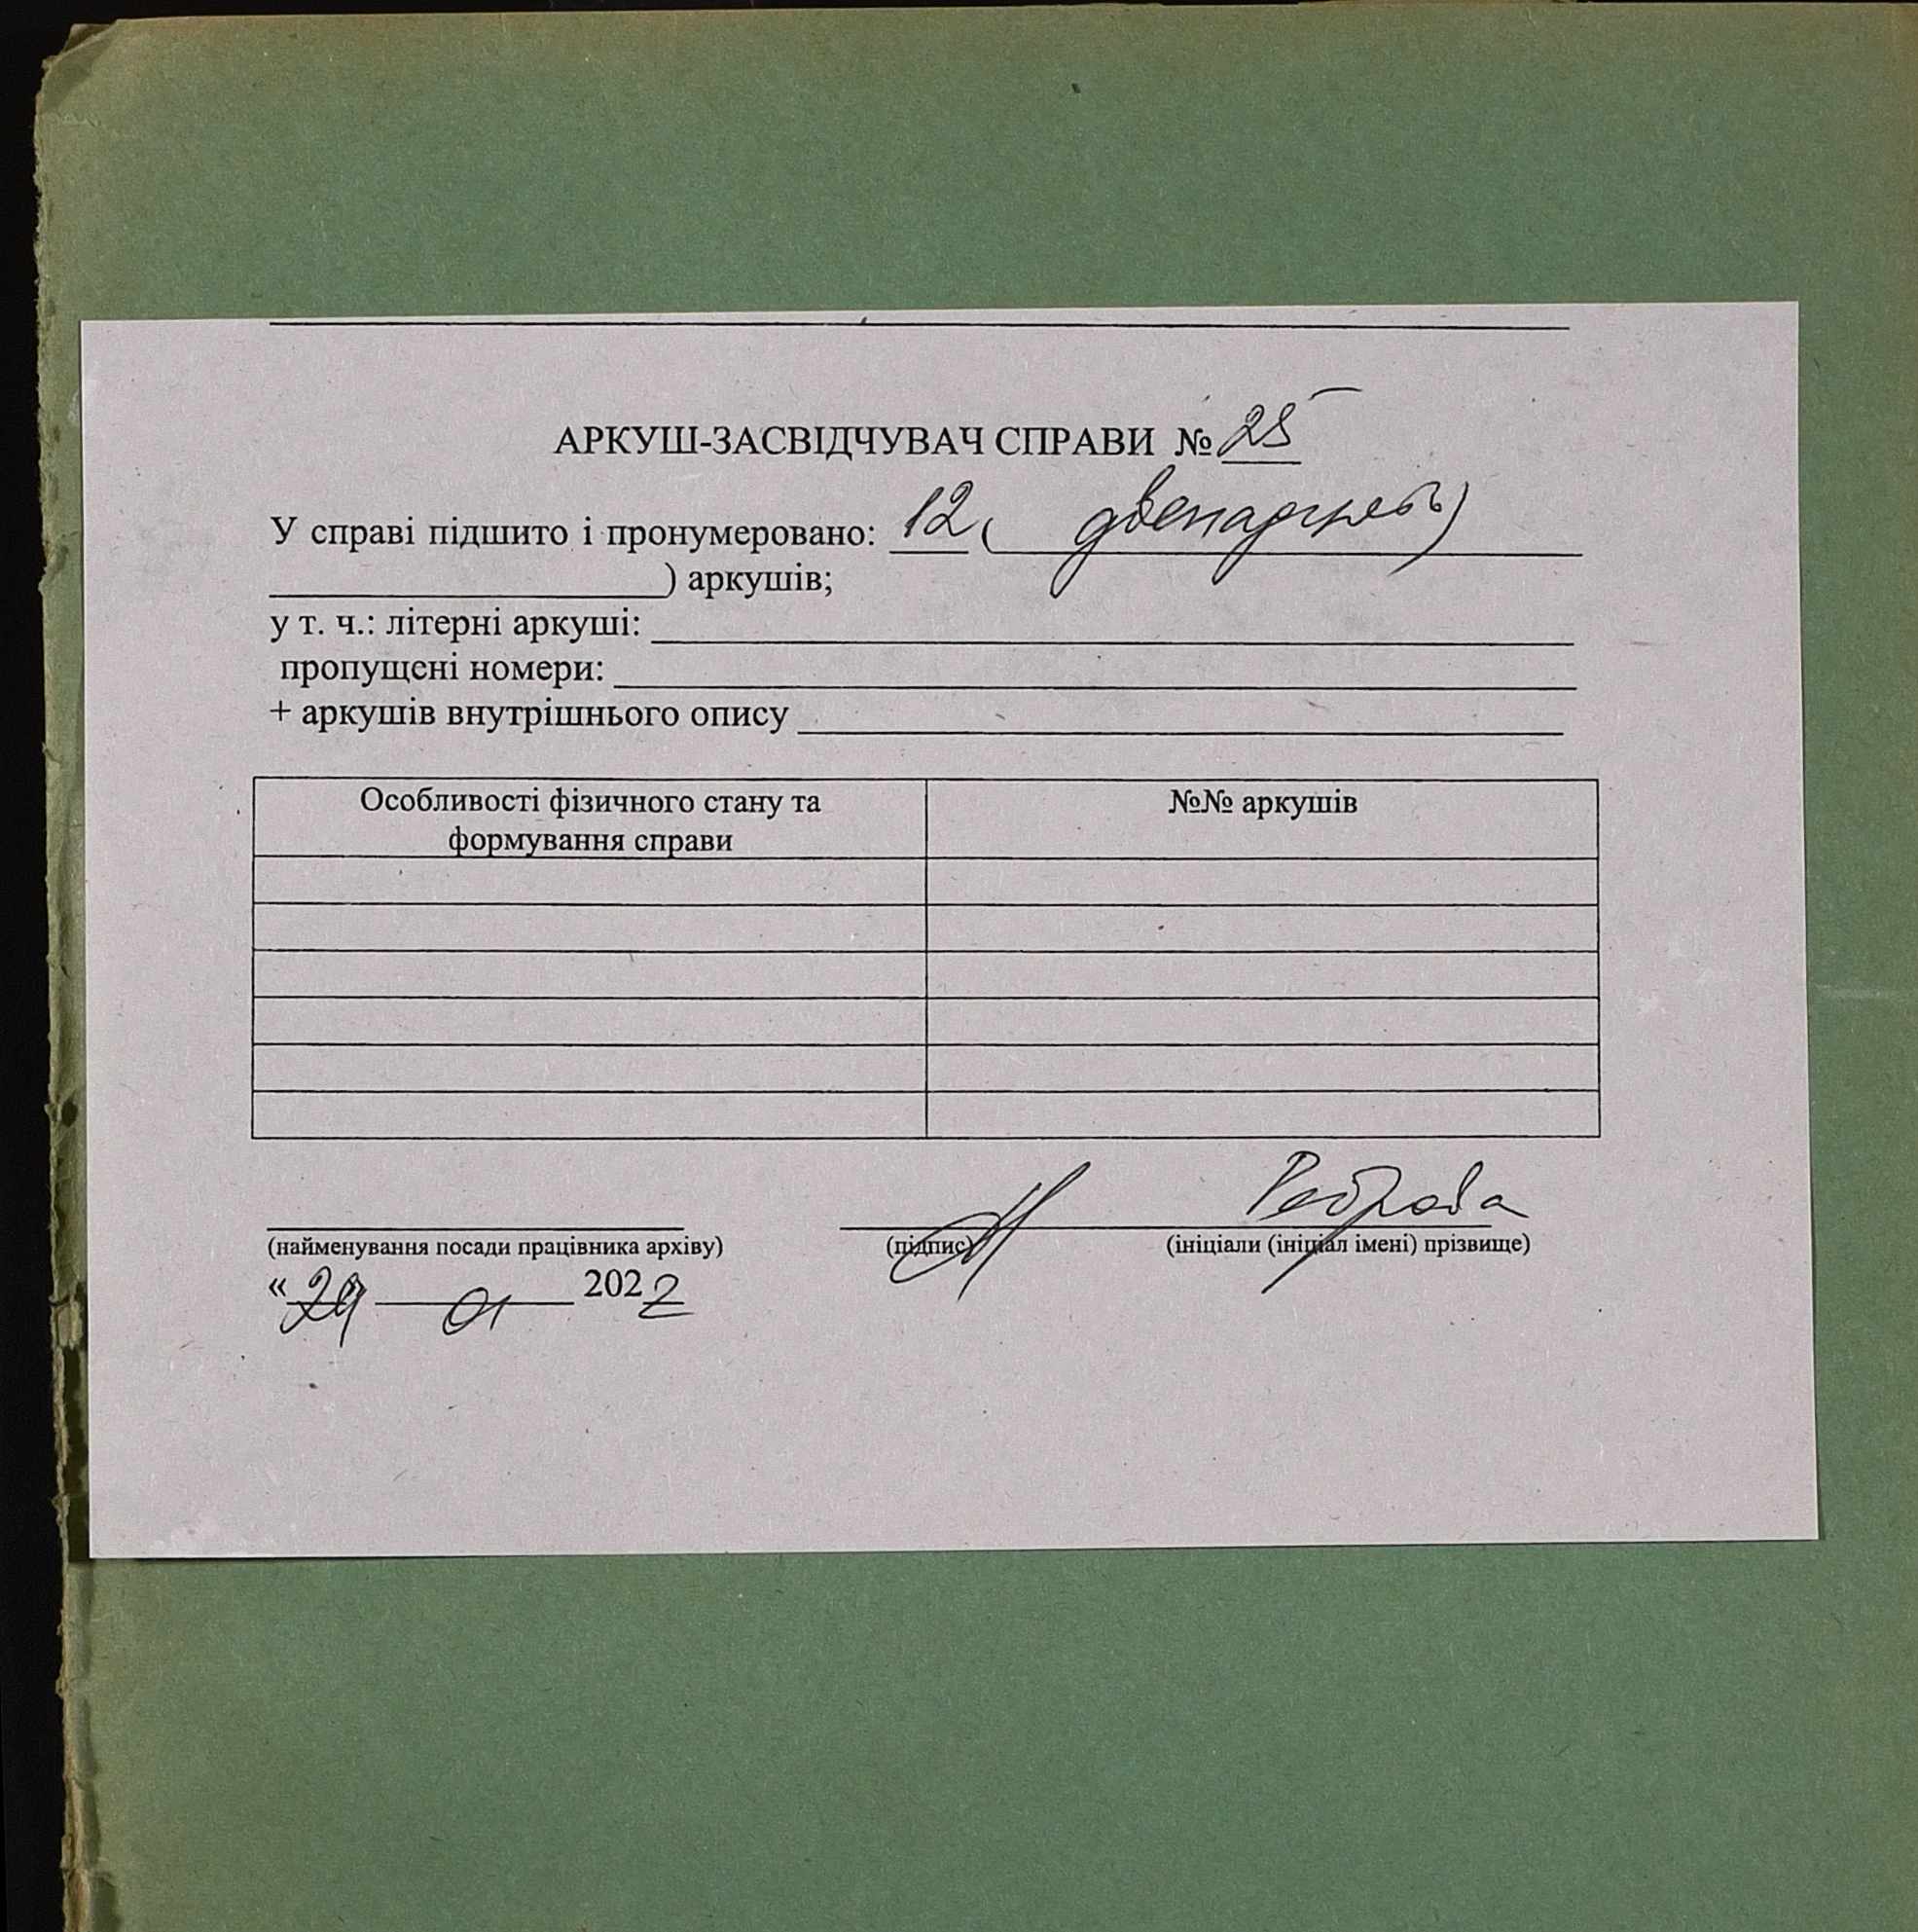 АРКУШ-ЗАСВІДЧУВАЧ СПРАВИ № 25
У справі підшито і пронумеровано: 12 ( двенадцать)
) аркушів;
у т. ч.: літерні аркуші:
пропущені номери:
+ аркушів внутрішнього опису
Особливості фізичного стану та
формування справи
№№ аркушів
Реброва
(найменування посади працівника архіву) (підпис) (ініціали (ініціал імені) прізвище)
« 29 01 2022